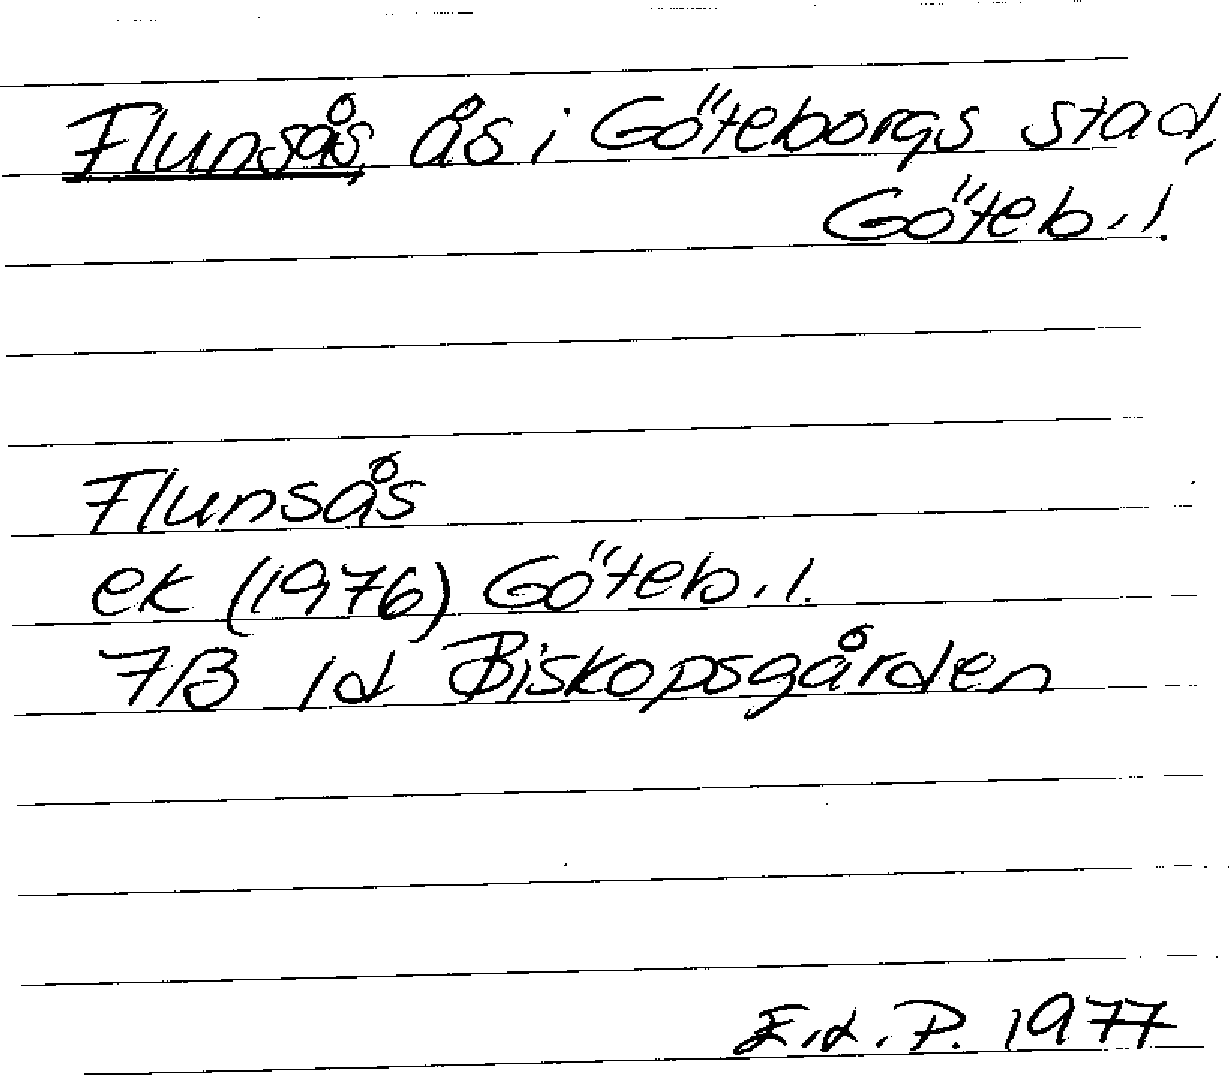 Flunsås, ås i Göteborgs stad,
Göteb. l.
Flunsås
ek (1976) Göteb. l.
7B 1d Biskopsgården
E.d.P. 1977